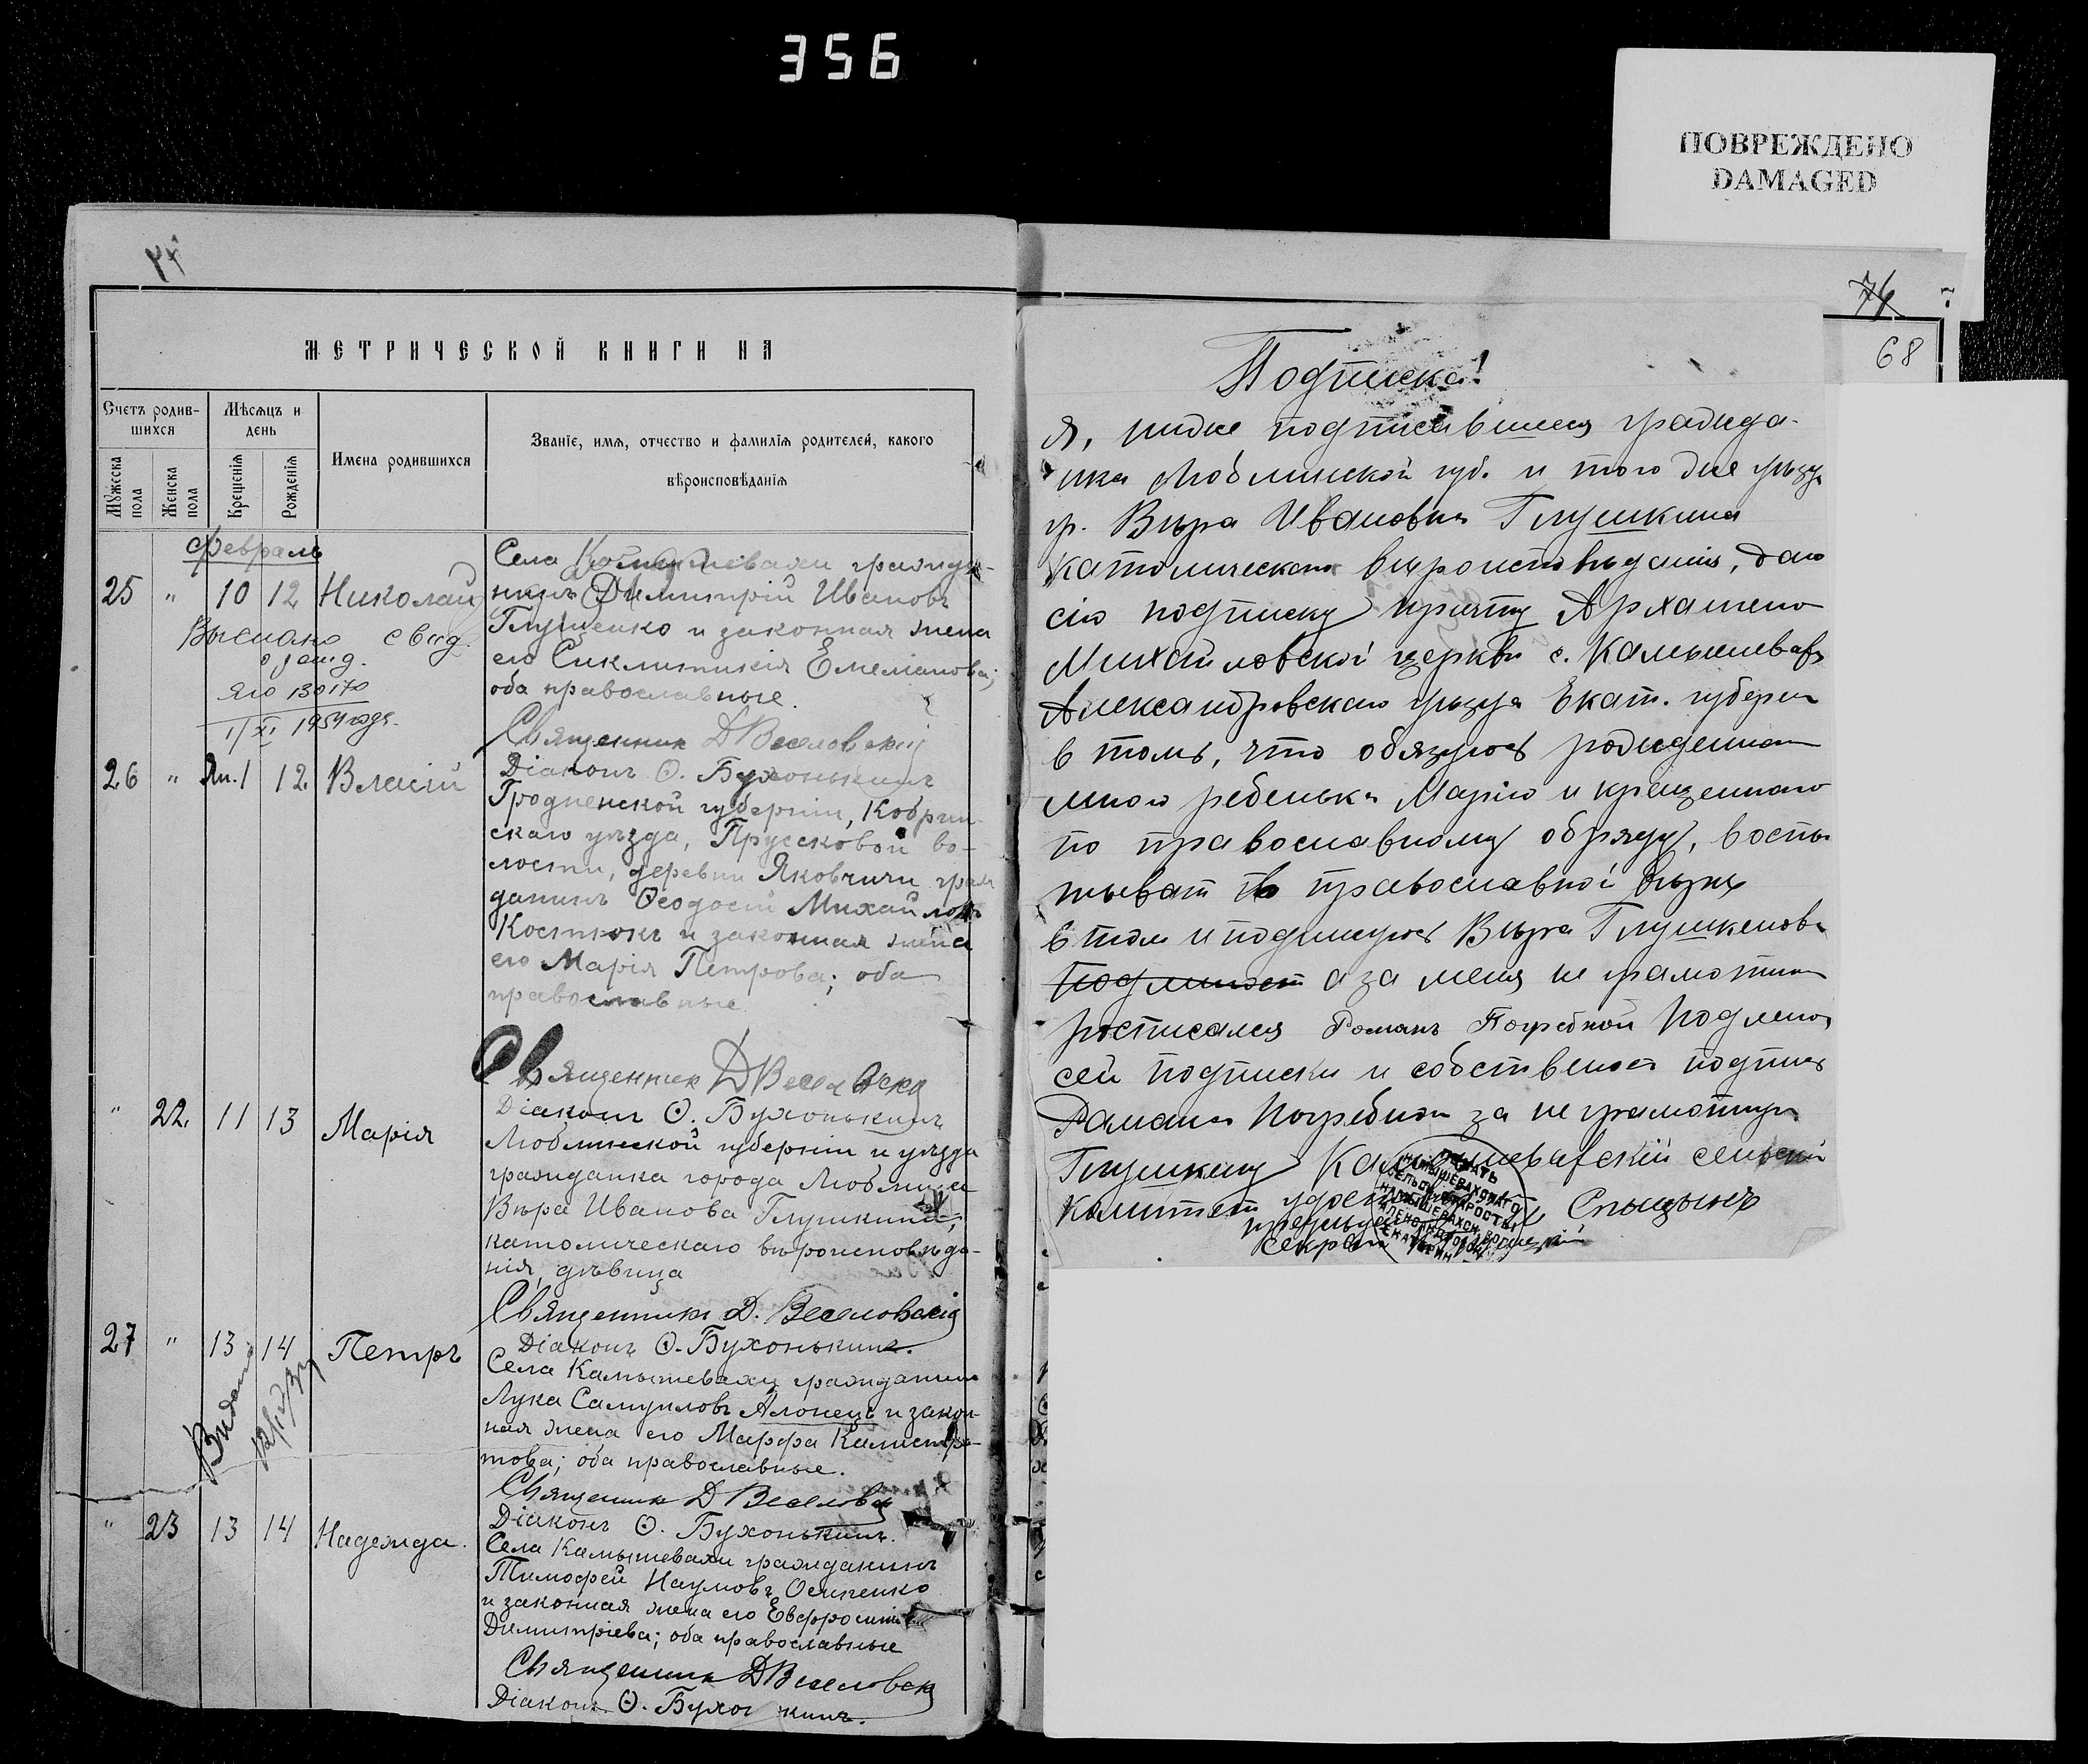 356
ПОВРЕЖДЕНО
DAMAGED
МЕТРИЧЕСКОЙ КНИГИ НА
Счетъ родив-
шихся
Мѣсяцъ и
день
Имена родившихся
Званіе, имя, отчество и фамилія родителей, какого
вѣроисповѣданія
Мужеска
пола
Женска
пола
Крещенія
Рожденія
Февраль
25 " 10 12 Николай
Выслано свид.
Яю 130170
1/XI 1954 года.
Села Камышевахи гражда-
нинъ Димитрій Ивановъ
Глущенко и законная жена
его Синклитикія Емеліанова;
оба православные.
Священник Д Веселовскій
Діаконъ Ѳ. Бухонькинъ
26 " Ян.1 12. Власій
Гродненской губерніи, Кобрин-
скаго уѣзда, Прусковой во-
лости, деревни Яковчичи граж
данинъ Ѳеодосій Михайловъ
Костюкъ и законная жена
его Марія Петрова; оба
православные
Священник Д Веселовскі
Діаконъ Ѳ. Бухонькинъ
" 22. 11 13 Марія
Люблинской губерніи и уѣзда
гражданка города Люблина
Вѣра Иванова Глушкина,
католическаго вѣроисповѣда-
нія, дѣвица
Священникъ Д. Веселовскій
Діаконъ Ѳ. Бухонькинъ.
27 " 13 14 Петръ
Видано
Села Камышевахи гражданинъ
Лука Самуиловъ Алонецъ и закон-
ная жена его Марфа Калистра-
това; оба православные.
Священник Д Веселовск
Діаконъ Ѳ. Бухонькинъ.
" 23 13 14 Надежда.
Села Камышевахи гражданинъ
Тимофей Наумовъ Осипенко
и законная жена его Евфросинія
Димитріева; оба православные
Священник Д Веселовск
Діаконъ Ѳ. Бухонькинъ.
74
68
Подписка!
Я, ниже подписавшися гражда-
нка Люблинской губ. и того же уѣзду
гр. Вѣра Ивановна Глушкина
католическаго вѣроисповѣданія, даю
сію подписку причту Архангело
Михайловской церкви с. Камышевах
Александровскаго уѣзда Екат. губерн
в томъ, что обязуюсь рожденнаго
мною ребенька Марію и крещеннаго
по православному обряду, воспи
тыват в православной вѣрѣ
в том и подпишуюсь Вѣра Глушкенова
а за меня не грамотную
росписался Романъ Погребной Подлино
сей подписки и собственност подпис
Рамана Погребной за не грамотную
Глушкину Камышевахскій сельскій
Камитет Спицынъ
секрет
ПЕЧАТЬ
КАМЫШЕВАХСКАГО
СЕЛЬСК. СТАРОСТЫ
КАМЫШЕВАХСК. ВОЛ.